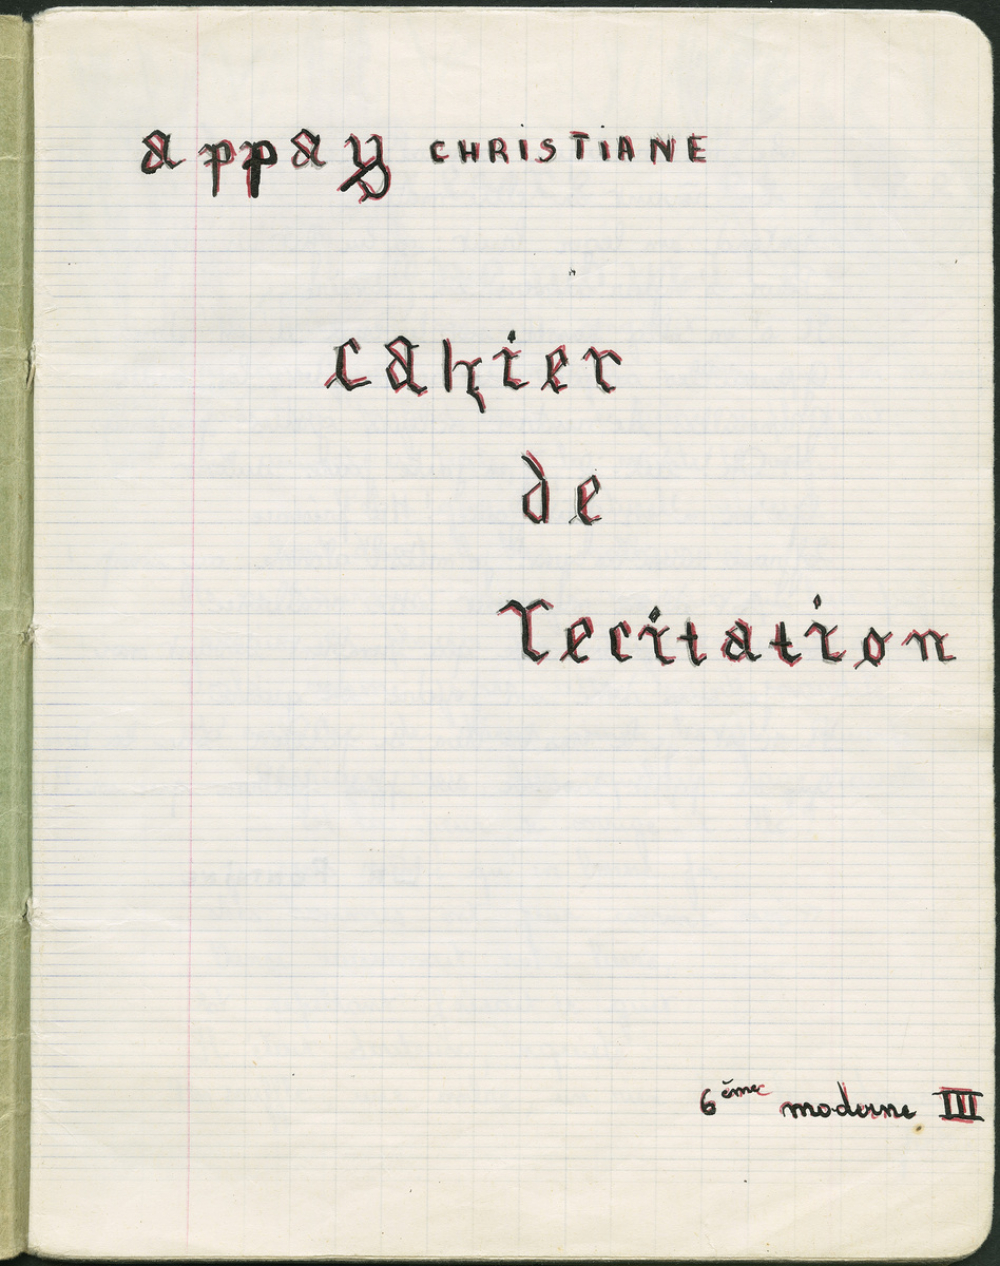 appay CHRiSTiANE
cahier
de
recitation
6ème moderne III